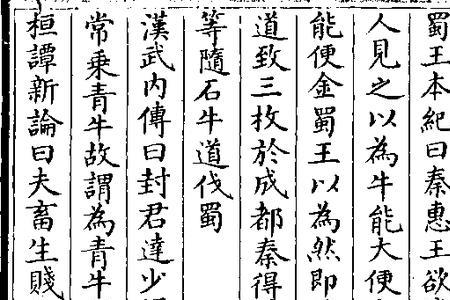 蜀王本紀曰秦惠王欲
人見之以為牛能大便
能便金蜀王以為然即
道致三枚於成都秦得
等隨石牛道伐蜀
漢武內傳曰封君達少
常乗青牛故謂為青牛
桓譚新論曰夫畜生賤